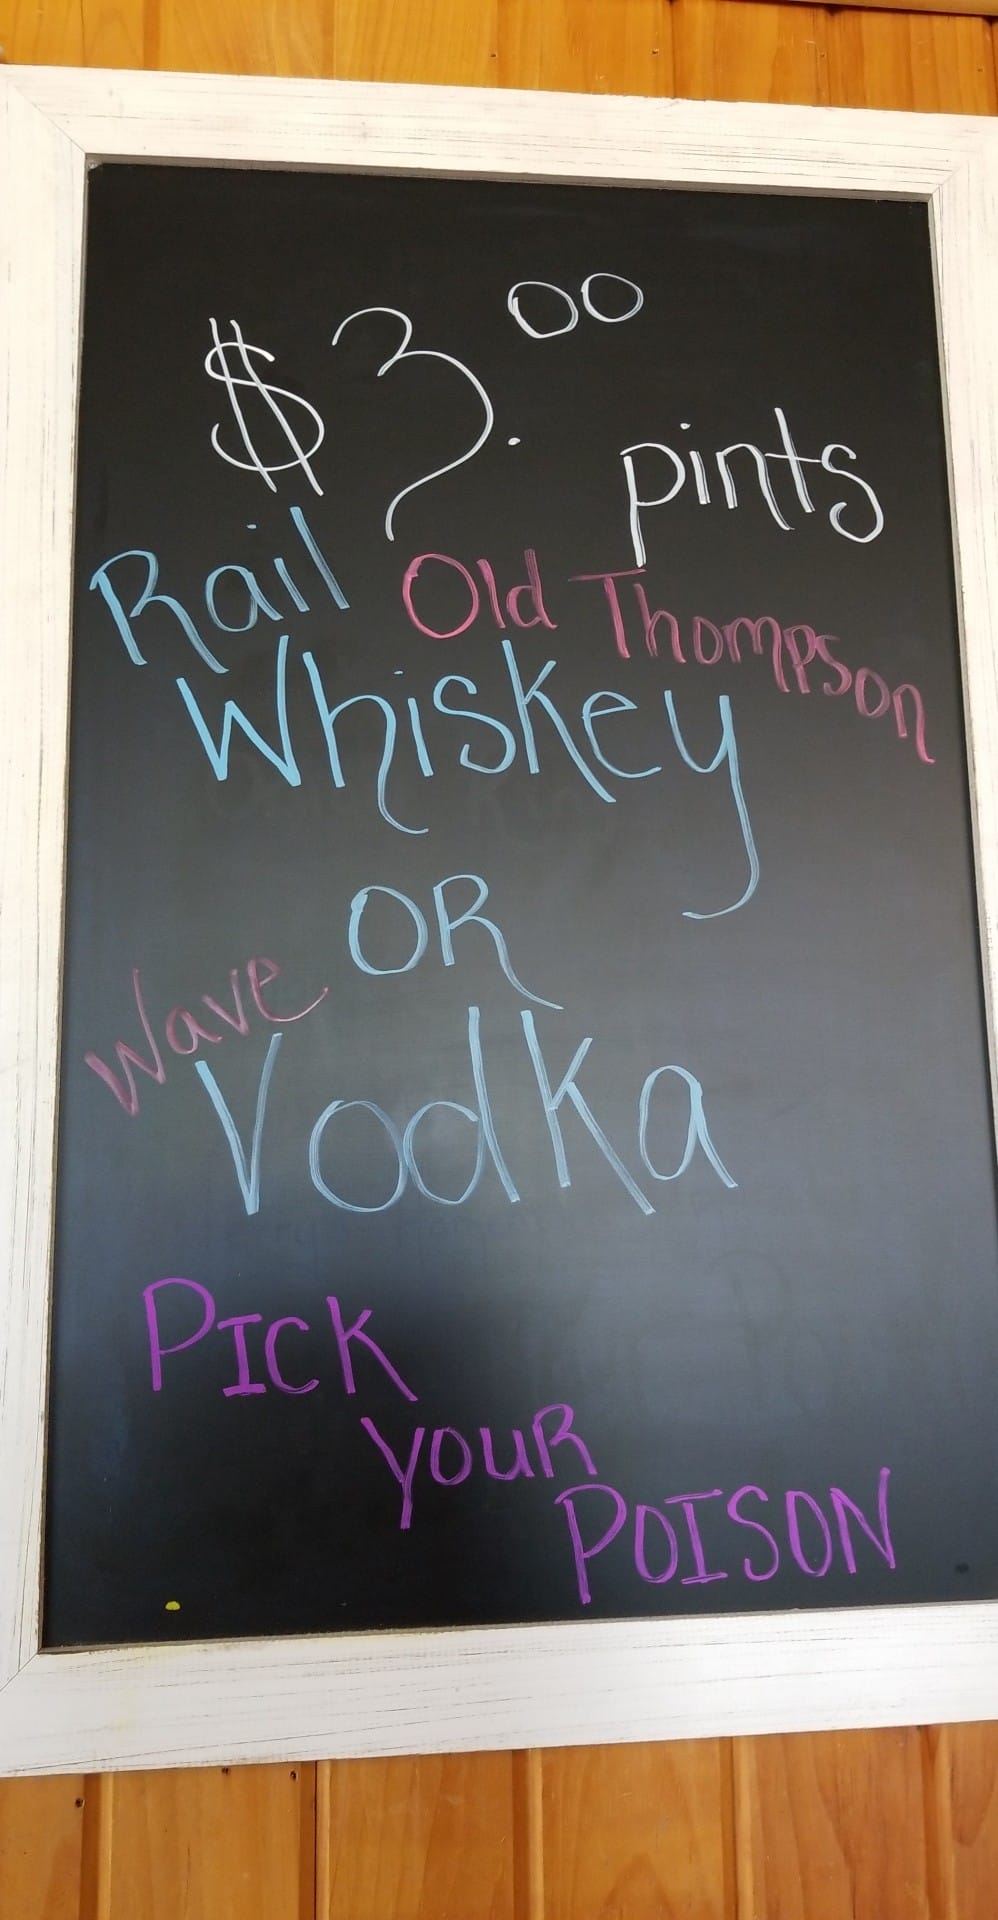 $3.00
pints
Rail Old Thompson
Whiskey
OR
Wave
Vodka
PICK
YOUR
POISON